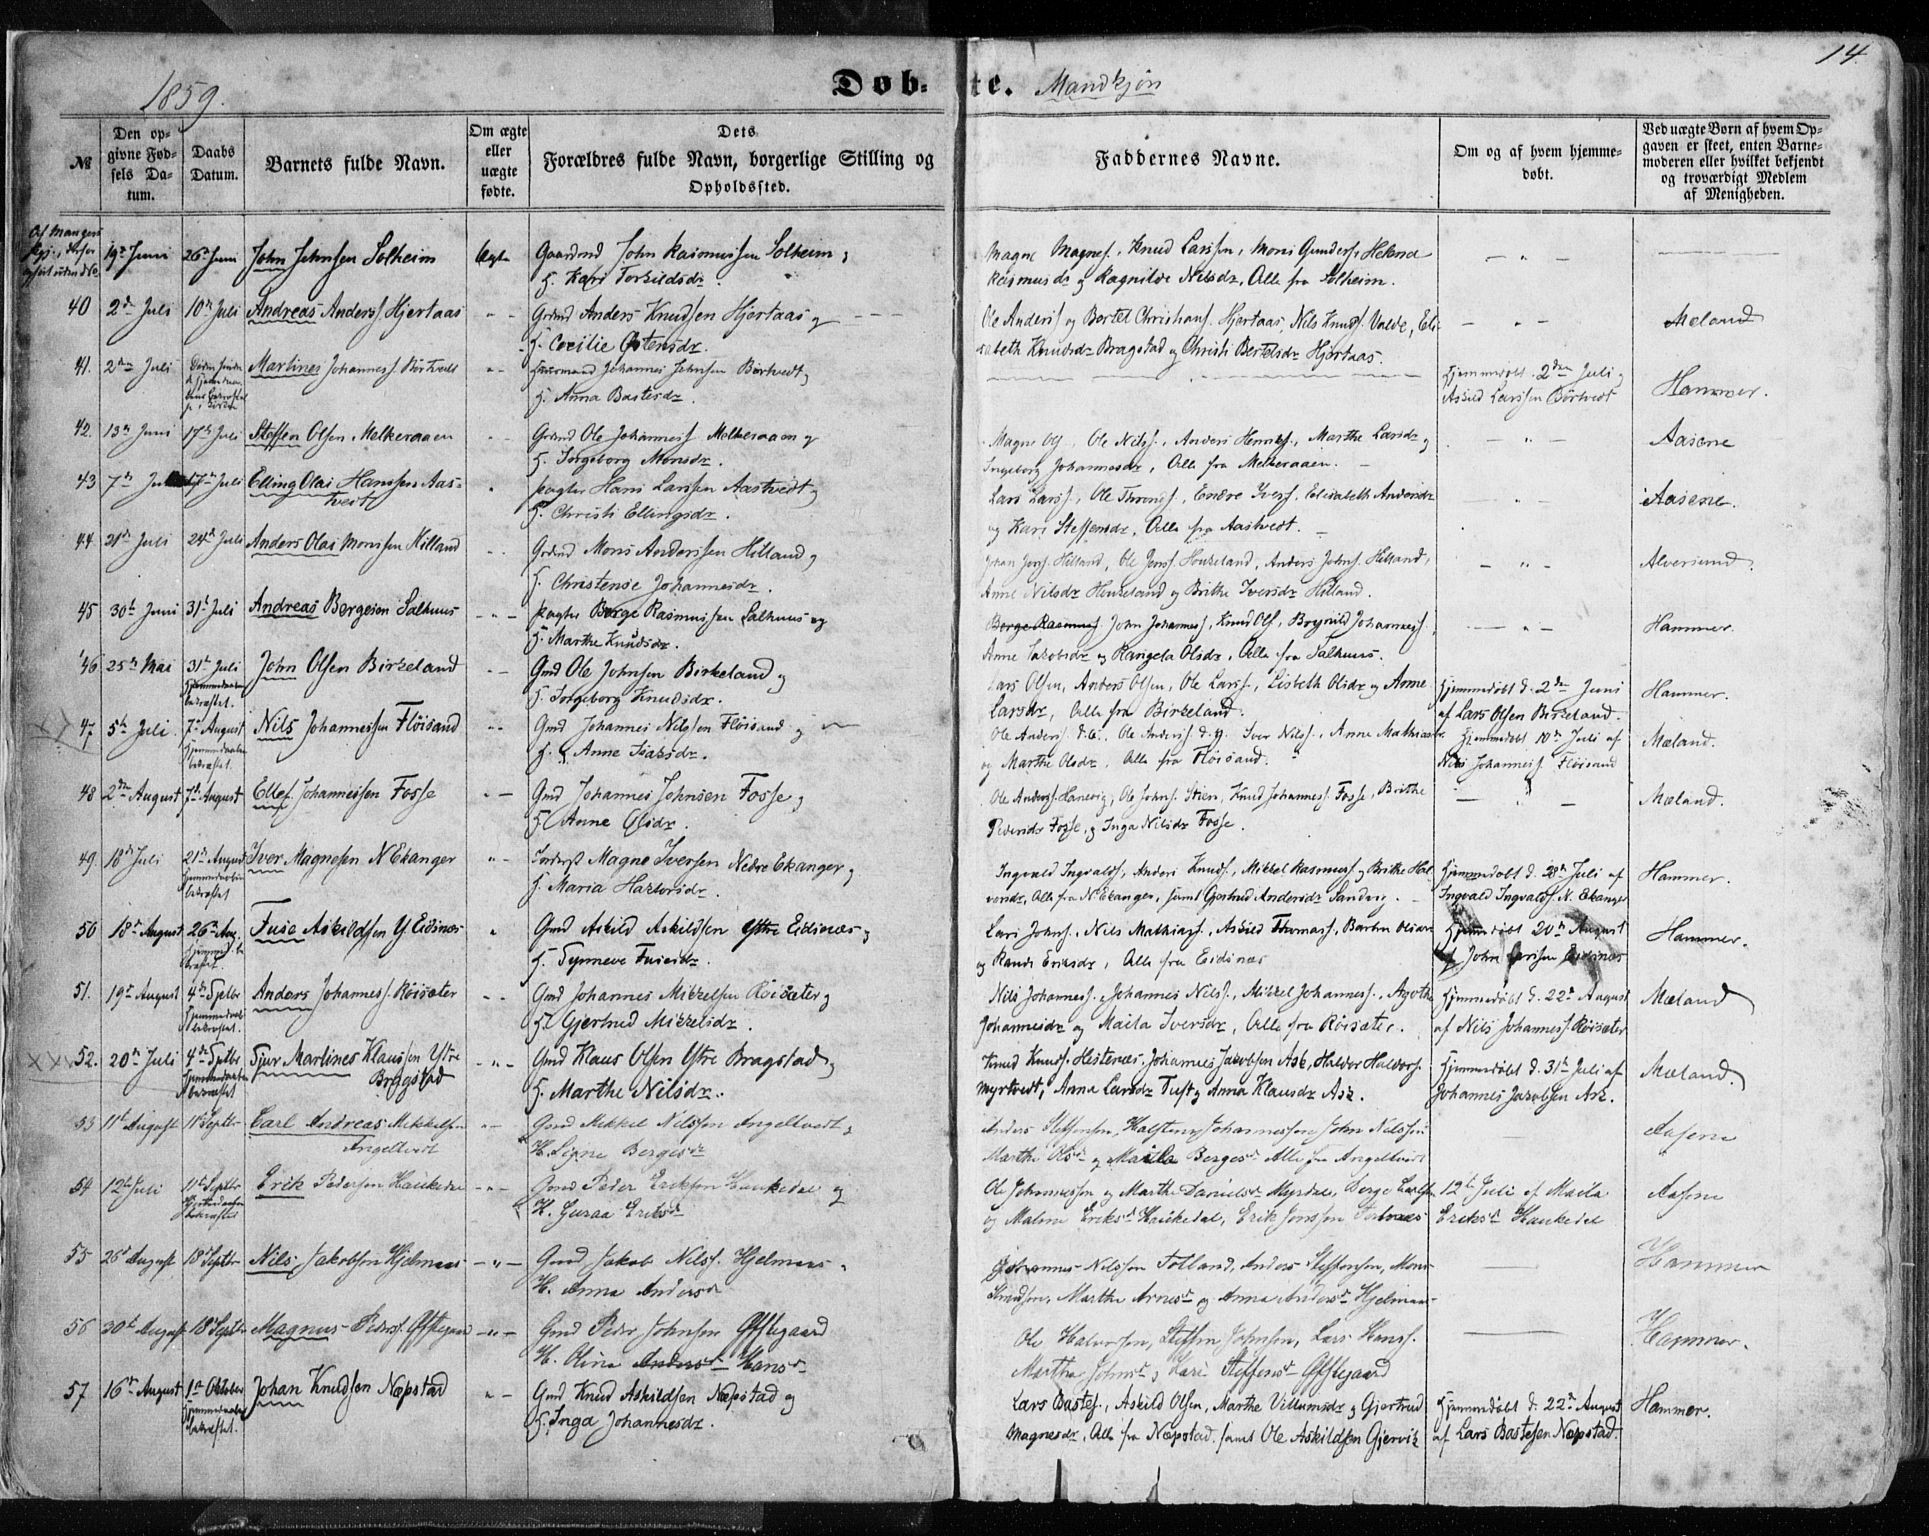 14.
1859.
Døb- te. Mandkjøn
№ | Den opgivne Fødsels Datum. | Daabs Datum. | Barnets fulde Navn. | Om ægte eller uægte fødte. | Dets Forældres fulde Navn, borgerlige Stilling og Opholdssted. | Faddernes Navne. | Om og af hvem hjemmedøbt. | Ved uægte Børn af hvem Opgaven er skeet, enten Barnemoderen eller hvilket bekjendt og troværdigt Medlem af Menigheden.
19de Juni | 26de Juni | John Johnsen Solheim | Ægte | Gaardmd John Rasmussen Solheim,
H. Kari Torkildsdr. | Magne Magnes., Knud Larssen, Mons Gunders,
Rasmusdr og Ragnilde Nilsdr, Alle fra Solheim.
40 | 2de Juli | 10de Juli | Andreas Anders. Hjertaas | Grdmd Anders Knudsen Hjertaas og
H. Cecilie Ostensdr. | Ole Anders. og Bertel Christians. Hjertaas, Nils Knuds. Valde, Elisabeth Knudsdr Bragstad og Christi Bertelsdr Hjertaas. | Mæland
41. | 2den Juli | Martines Johannes. Börtvedt | Huusmand Johannes Johnsen Börtvedt,
H. Anna Bastesdr. | Hjemmedöbt 2den Juli,
Askild Larssen Börtvedt | Hammer.
42. | 13de Juni | 17de Juli | Steffen Olsen Melkeraaen | Grdmd Ole Johannes. Melkeraaen og
H. Ingeborg Monsdr. | Magne Ols., Ole Nils., Anders Henriks., Marthe Larsdr og
Ingeborg Johannesdr, Alle fra Melkeraaen. | Aasene
43 | 7de | 17de Juli | Elling Olai Hanssen Aastvedt | Pagter Hans Larssen Aastvedt,
H. Christi Ellingsdr. | Lars Lars., Ole Throngs., Endre Ivers. Elisabeth Andersdr
og Kari Steffensdr, Alle fra Aastvedt. | Aasene.
44. | 21de Juli | 24de Juli | Anders Olai Monssen Hilland | Grdmd Mons Anderssen Hilland,
H. Christense Johannesdr. | Johan Jons. Hilland, Ole Jens. Houkeland, Anders Johns. Hilland,
Anne Nilsdr Houkeland og Brithe Iversdr Hilland. | Alversund.
45 | 30te Juni | 31te Juli | Andreas Bergesen Salhuus | Pagter Berge Rasmussen Salhuus og
H. Marthe Knudsdr. | Berge Rasmus. John Johannes., Knud Ols., Brynild Johannes.
Anne Jacobsdr og Rangela Olsdr, Alle fra Salhuus. | Hammer.
46 | 25de Mai | 31te Juli
Hjemmedaaben
bekræftet. | John Olsen Birkeland | Gmd Ole Johnsen Birkeland og
H. Ingeborg Knudsdr. | Lars Olsen, Anders Olsen, Ole Lars., Lisbeth Olsdr og Anne
Larsdr, Alle fra Birkeland. | Hjemmedöbt d. 2den Juni
af Lars Olsen Birkeland. | Hammer.
47 | 5te Juli | 7de August
Hjemmedaaben
bekræftet. | Nils Johannessen Flöisand | Gmd Johannes Nilssen Flöisand og
H. Anne Isaksdr. | Ole Anders. d.Æ., Ole Anders. d.y. Iver Nils., Anne Mathiasdr
og Marthe Olsdr, Alle fra Flöisand. | Hjemmedöbt 10de Juli af
Nils Johannes. Flöisand | Mæland.
48 | 2den August | 7de August | Ellef Johannessen Fosse | Gmd Johannes Johnsen Fosse,
H. Anne Olsdr. | Ole Anders. Hanevig, Ole Johns. Stien, Knud Johannes. Fosse, Brithe
Pedersdr Fosse, og Inga Nilsdr Fosse. | Mæland.
49. | 18de Juli | 21de August
Hjemmedaaben
bekræftet | Iver Magnesen N Ekanger | Inderst Magne Iversen Nedre Ekanger,
H. Maria Halvorsdr. | Ingvald Ingvalds., Anders Knuds., Mikkel Rasmus. og Brithe Halvorsdr, Alle fra N Ekanger, samt Gjertrud Andersdr Sandvig. | Hjemmedöbt d. 28de Juli af
Ingvald Ingvalds. N. Ekanger | Hammer.
50 | 18de August | 26de Aug. | Fuse Askildsen Y. Eidsnæs | Gmd Askild Askildsen Ystre Eidsnæs,
H. Synneve Fusesdr. | Lars Johns., Nils Mathias., Askild Thomas., Barbra Olsdr
og Randi Eriksdr, Alle fra Eidsnæs | Hjemmedöbt 20de August
af John Larssen Eidsnæs | Hammer.
51. | 19de August | 4de Septbr
Hjemmedaab
bekræftet. | Anders Johannes. Röisæter | Gmd Johannes Mikkelsen Röisæter,
H. Gjertrud Mikkelsdr. | Nils Johannes., Johannes Nils., Mikkel Johannes., Agothe
Johannesdr og Maila Iversdr, Alle fra Röisæter. | Hjemmedöbt d. 22de August
af Nils Johannes. Röisæter | Mæland
52. | 20de Juli | 4de Septbr
Hjemmedaaben
bekræftet | Sjur Martines Klaussen Ystre Bragstad | Gmd Klaus Olsen Ystre Bragstad,
H. Marthe Nilsdr. | Knud Knuds. Hestenæs, Johannes Jacobsen Ask, Haldor Haldors.
Myrtvedt, Anna Larsdr Tuft, Anna Klausdr Ask. | Hjemmedöbt d. 31te Juli af
Johannes Jacobsen Ask. | Mæland.
53 | 11te August | 11te Septbr | Carl Andreas Mikkelsen Angeltvedt | Gmd Mikkel Nilssen Angeltvedt,
H. Signe Bergesdr | Anders Steffensen, Halsten Johannessen, John Nilssen
Marthe Olsdr og Maila Bergesdr Alle fra Angeltvedt | Aasene
54 | 12te Juli | 11te Septbr | Erik Pedersen Haukedal | Gmd Peder Eriksen Haukedal og
H. Guraa Eriksdr | Ole Johannessen og Marthe Danielsdr Myrdal, Berge
og Malene Eriksdr Haukedal, Erik Jonssen | 12te Juli af Maila
Eriksdr Haukedal | Aasene
55 | 26de August | 18de Septbr | Nils Jakobsen Hjelmaas | Gmd Jakob Nils. Hjelmaas,
H. Anna Andersdr | Johannes Nilssen Totland, Anders Steffensen, Mons
Knudsen, Marthe Arnesdr og Anna Andersdr Hjelmaas | Hammer
56 | 30te August | 18de Septbr | Magnus Peders. Gjstegaard | Gmd Peder Johnsen Gjstegaard
H. Olina Andersdr Hansdr | Ole Halvorsen, Steffen Johnsen, Lars Hans.
Martha Johnsdr, Kari Steffensdr Gjstegaard | Hammer.
57 | 16de August | 1ste Oktober
Hjemmedaaben
bekræftet. | Johan Knudsen Næpstad | Gmd Knud Askildsen Næpstad og
H. Inga Johannesdr. | Lars Bastes., Askild Olsen, Marthe Villumsdr og Gjertrud
Magnesdr, Alle fra Næpstad, samt Ole Askildsen Gjervik | Hjemmedöbt d. 22de August
af Lars Bastesen Næpstad. | Hammer.